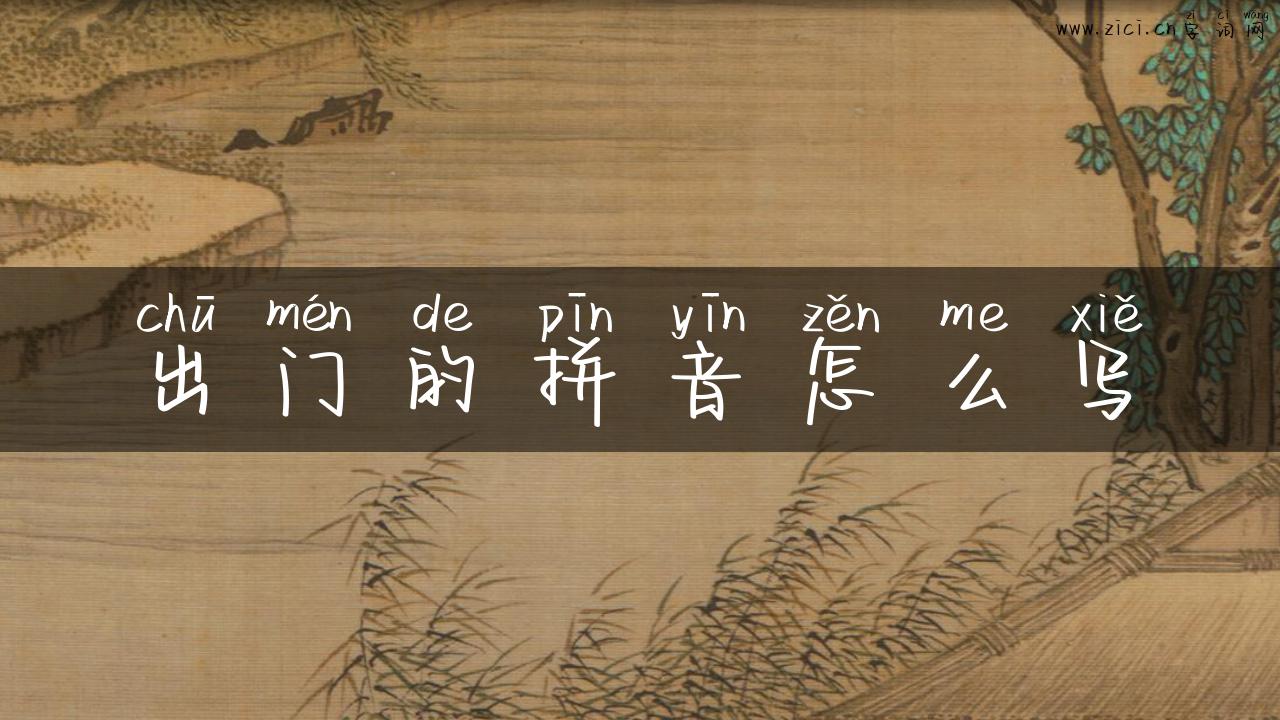 zì cí wǎng
www.zici.cn字词网
chū mén de pīn yīn zěn me xiě
出门的拼音怎么写